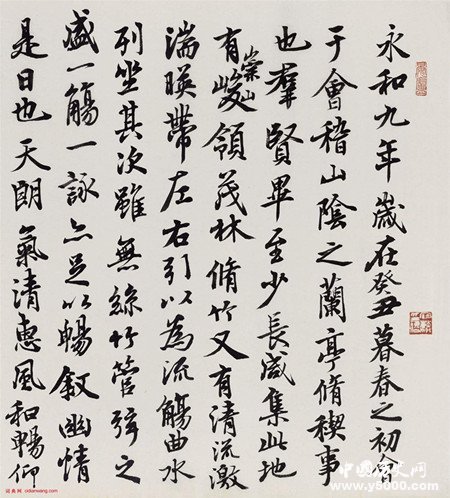 永和九年歲在癸丑暮春之初會
于會稽山陰之蘭亭脩稧事
也羣賢畢至少長咸集此地
有崇山峻領茂林脩竹又有清流激
湍暎帶左右引以為流觴曲水
列坐其次雖無絲竹管弦之
盛一觴一詠亦足以暢敘幽情
是日也天朗氣清惠風和暢仰
词典网 cidianwang.com
www.y5000.com